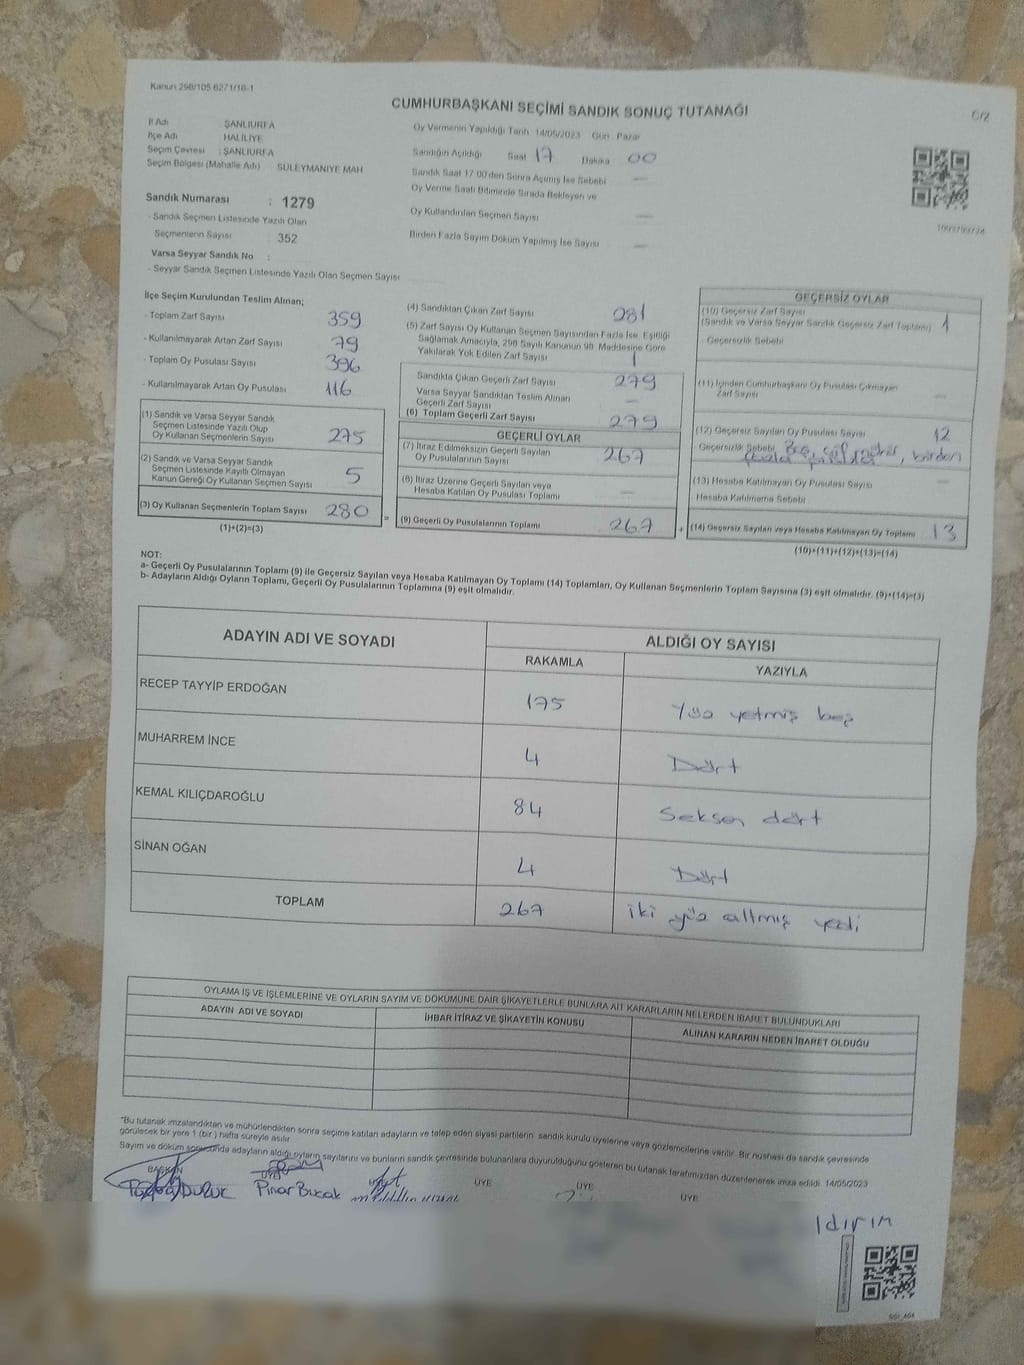 Kanun 298/105 6271/16-1
CUMHURBAŞKANI SEÇİMİ SANDIK SONUÇ TUTANAĞI
C/2
İl Adı : ŞANLIURFA
İlçe Adı : HALİLİYE
Seçim Çevresi : ŞANLIURFA
Seçim Bölgesi (Mahalle Adı) : SÜLEYMANİYE MAH
Oy Vermenin Yapıldığı Tarih : 14/05/2023 Gün : Pazar
Sandığın Açıldığı Saat 17 Dakika 00
Sandık Saat 17 00'den Sonra Açılmış İse Sebebi —
Oy Verme Saati Bitiminde Sırada Bekleyen ve
Oy Kullandırılan Seçmen Sayısı —
Birden Fazla Sayım Döküm Yapılmış İse Sayısı —
Sandık Numarası : 1279
- Sandık Seçmen Listesinde Yazılı Olan
Seçmenlerin Sayısı 352
Varsa Seyyar Sandık No :
- Seyyar Sandık Seçmen Listesinde Yazılı Olan Seçmen Sayısı
İlçe Seçim Kurulundan Teslim Alınan;
- Toplam Zarf Sayısı 359
- Kullanılmayarak Artan Zarf Sayısı 79
- Toplam Oy Pusulası Sayısı 396
- Kullanılmayarak Artan Oy Pusulası 116
(1) Sandık ve Varsa Seyyar Sandık
Seçmen Listesinde Yazılı Olup
Oy Kullanan Seçmenlerin Sayısı 275
(2) Sandık ve Varsa Seyyar Sandık
Seçmen Listesinde Kayıtlı Olmayan
Kanun Gereği Oy Kullanan Seçmen Sayısı 5
(3) Oy Kullanan Seçmenlerin Toplam Sayısı 280 =
(1)+(2)=(3)
(4) Sandıktan Çıkan Zarf Sayısı 281
(5) Zarf Sayısı Oy Kullanan Seçmen Sayısından Fazla İse, Eşitliği
Sağlamak Amacıyla, 298 Sayılı Kanunun 98. Maddesine Göre
Yakılarak Yok Edilen Zarf Sayısı 1
Sandıkta Çıkan Geçerli Zarf Sayısı 279
Varsa Seyyar Sandıktan Teslim Alınan
Geçerli Zarf Sayısı —
(6) Toplam Geçerli Zarf Sayısı 279
GEÇERLİ OYLAR
(7) İtiraz Edilmeksizin Geçerli Sayılan
Oy Pusulalarının Sayısı 267
(8) İtiraz Üzerine Geçerli Sayılan veya
Hesaba Katılan Oy Pusulası Toplamı —
(9) Geçerli Oy Pusulalarının Toplamı 267 +
GEÇERSİZ OYLAR
(10) Geçersiz Zarf Sayısı
(Sandık ve Varsa Seyyar Sandık Geçersiz Zarf Toplamı) 1
- Geçersizlik Sebebi
(11) İçinden Cumhurbaşkanı Oy Pusulası Çıkmayan
Zarf Sayısı —
(12) Geçersiz Sayılan Oy Pusulası Sayısı 12
Geçersizlik Sebebi Boş, birden
fazla
(13) Hesaba Katılmayan Oy Pusulası Sayısı —
Hesaba Katılmama Sebebi
(14) Geçersiz Sayılan veya Hesaba Katılmayan Oy Toplamı 13
(10)+(11)+(12)+(13)=(14)
NOT:
a- Geçerli Oy Pusulalarının Toplamı (9) ile Geçersiz Sayılan veya Hesaba Katılmayan Oy Toplamı (14) Toplamları, Oy Kullanan Seçmenlerin Toplam Sayısına (3) eşit olmalıdır. (9)+(14)=(3)
b- Adayların Aldığı Oyların Toplamı, Geçerli Oy Pusulalarının Toplamına (9) eşit olmalıdır.
ADAYIN ADI VE SOYADI ALDIĞI OY SAYISI
RAKAMLA YAZIYLA
RECEP TAYYİP ERDOĞAN 175 Yüz yetmiş beş
MUHARREM İNCE 4 Dört
KEMAL KILIÇDAROĞLU 84 Seksen dört
SİNAN OĞAN 4 Dört
TOPLAM 267 iki yüz altmış yedi
OYLAMA İŞ VE İŞLEMLERİNE VE OYLARIN SAYIM VE DÖKÜMÜNE DAİR ŞİKAYETLERLE BUNLARA AİT KARARLARIN NELERDEN İBARET BULUNDUKLARI
ADAYIN ADI VE SOYADI İHBAR İTİRAZ VE ŞİKAYETİN KONUSU ALINAN KARARIN NEDEN İBARET OLDUĞU
*Bu tutanak imzalandıktan ve mühürlendikten sonra seçime katılan adayların ve talep eden siyasi partilerin sandık kurulu üyelerine veya gözlemcilerine verilir. Bir nüshası da sandık çevresinde
görülecek bir yere 1 (bir ) hafta süreyle asılır.
Sayım ve döküm sonucunda adayların aldığı oyların sayılarını ve bunların sandık çevresinde bulunanlara duyurulduğunu gösteren bu tutanak tarafımızdan düzenlenerek imza edildi. 14/05/2023
BAŞKAN ÜYE ÜYE ÜYE ÜYE
DURUK Pınar Bucak
ldırım